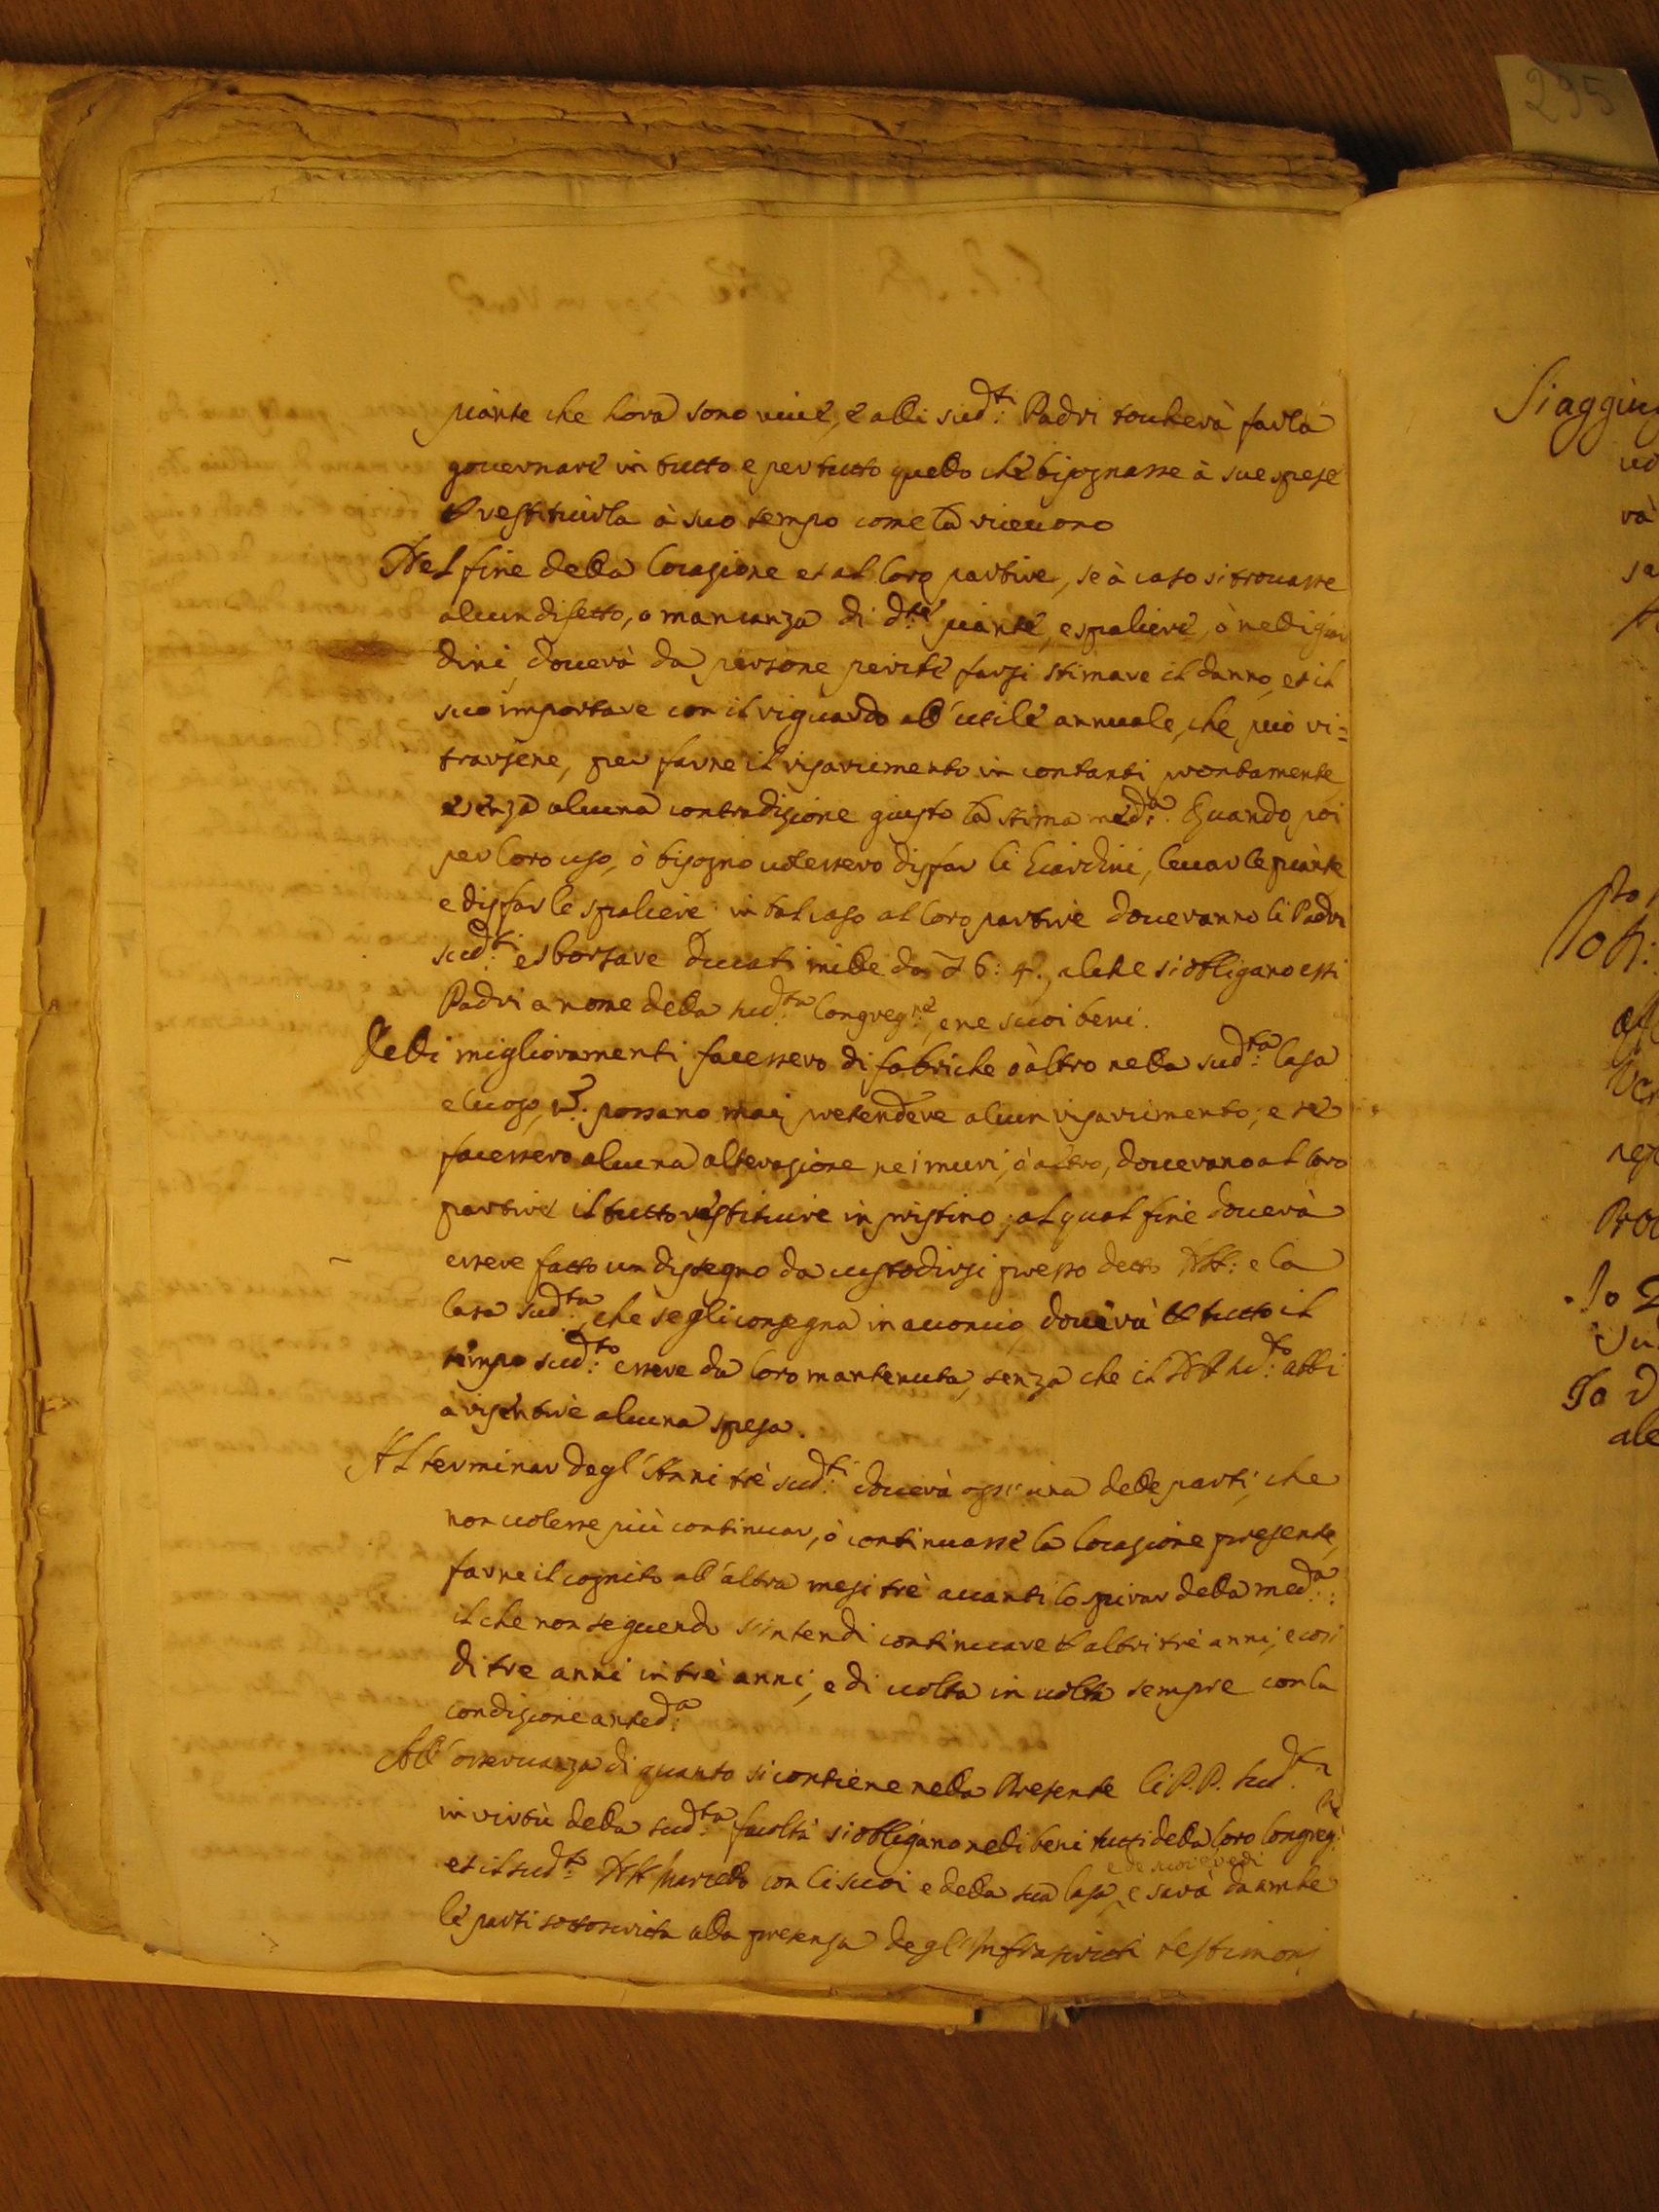 295
piante che hora sono uiue, e alli sud:ti Padri toccherà farla
gouernare in tutto e per tutto quello che bisognasse à sue spese
e restituirla à suo tempo come la riceuono
Nel fine della locazione et al loro partire, se à caso si trouasse
alcun difetto, o mancanza di d:te piante, e spaliere, ò nelli giar
dini, douerà da persone perite farsi stimare il danno, et il
suo importare con il riguardo all'utile annuale, che può ri=
trarsene, per farne il risarcimento in contanti prontamente
e senza alcuna contradizione giusto la stima med:a. Quando poi
per loro uso, ò bisogno uolessero disfar li Giardini, leuar le piante
e disfar le spaliere in tal caso al loro partire doueranno li Padri
sud:ti esborsare Ducati mille da £ 6: 4:, al che si obligano essi
Padri a nome della sud:ta Congreg:ne, e ne suoi beni.
Delli miglioramenti facessero di fabriche ò altro nella sud:ta Casa
e luogo, possano mai pretendere alcun risarcimento; e se
facessero alcuna alterazione ne i muri, ò altro, douerano al loro
partire il tutto restituire in pristino; al qual fine douerà
essere fatto un dissegno da custodirsi presso detto NH: e la
Casa sud:ta, che se gli consegna in acconcio, douerà tutto il
tempo sud:to essere da loro mantenuta, senza che il NH sud:to abbi
a risentire alcuna spesa.
Al terminar degl'Anni trè sud:ti douerà ogni una delle parti, che
non uolesse più continuar, ò continuasse la locazione presente,
farne il cognito all'altra mesi trè auanti lo spirar della med:a:
il che non seguendo s'intendi continuare altri trè anni, e cosi
di tre anni in trè anni, e di uolta in uolta sempre con la
condizione anted:a
All'osseruanza di quanto si contiene nella Presente li P.P. sud:ti
in virtù della sud:ta facoltà si obligano nelli beni tutti della loro Congreg:ne
et il sud:to NH Marcello con li suoi e della sua Casa, e de suoi eredi e sarà da ambe
le parti sottoscritta alla presenza degl'Infrascritti testimonj
Si aggiun